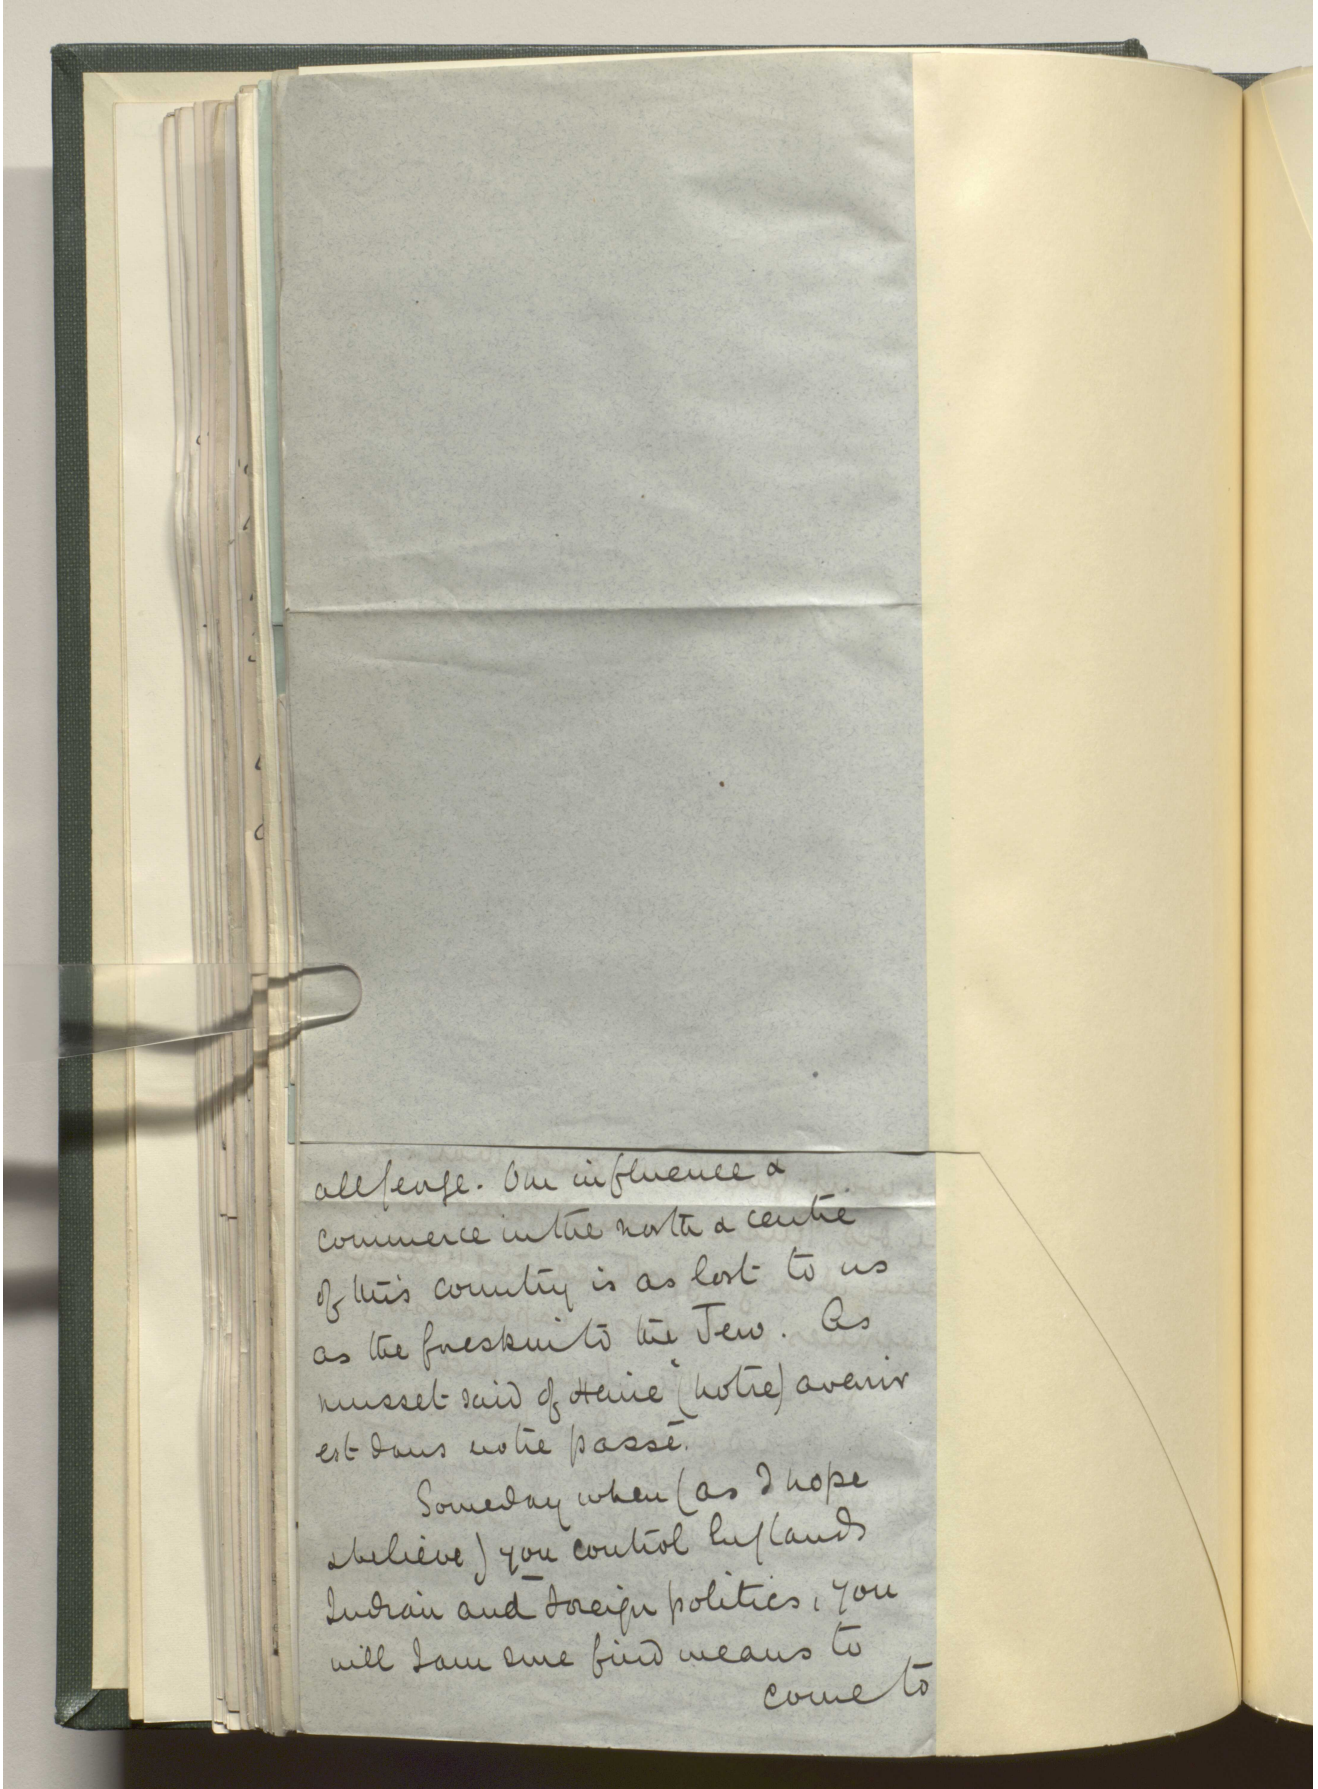 Our influence &
commerce in the north & centre
of this country is as lost to us
as the foreskin to the Jew. As
musset said of Heine "(notre) avenir
est dans notre passé.
Someday when (as I hope
& believe) you control Englands
Indian and foreign politics, you
will I am sure find means to
come to